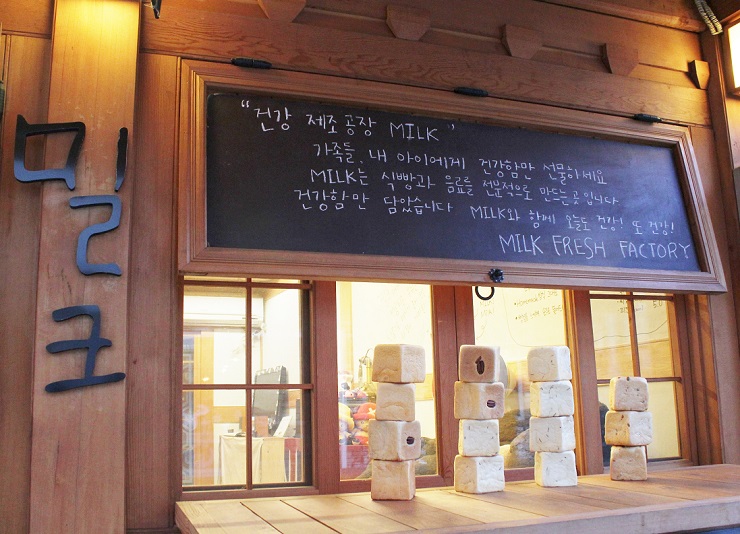 밀크
“건강 제조공장 MILK”
가족들, 내 아이에게 건강함만 선물하세요
MILK는 식빵과 음료를 전문적으로 만드는 곳입니다
건강함만 담았습니다 MILK와 함께 오늘도 건강! 또 건강!
MILK FRESH FACTORY